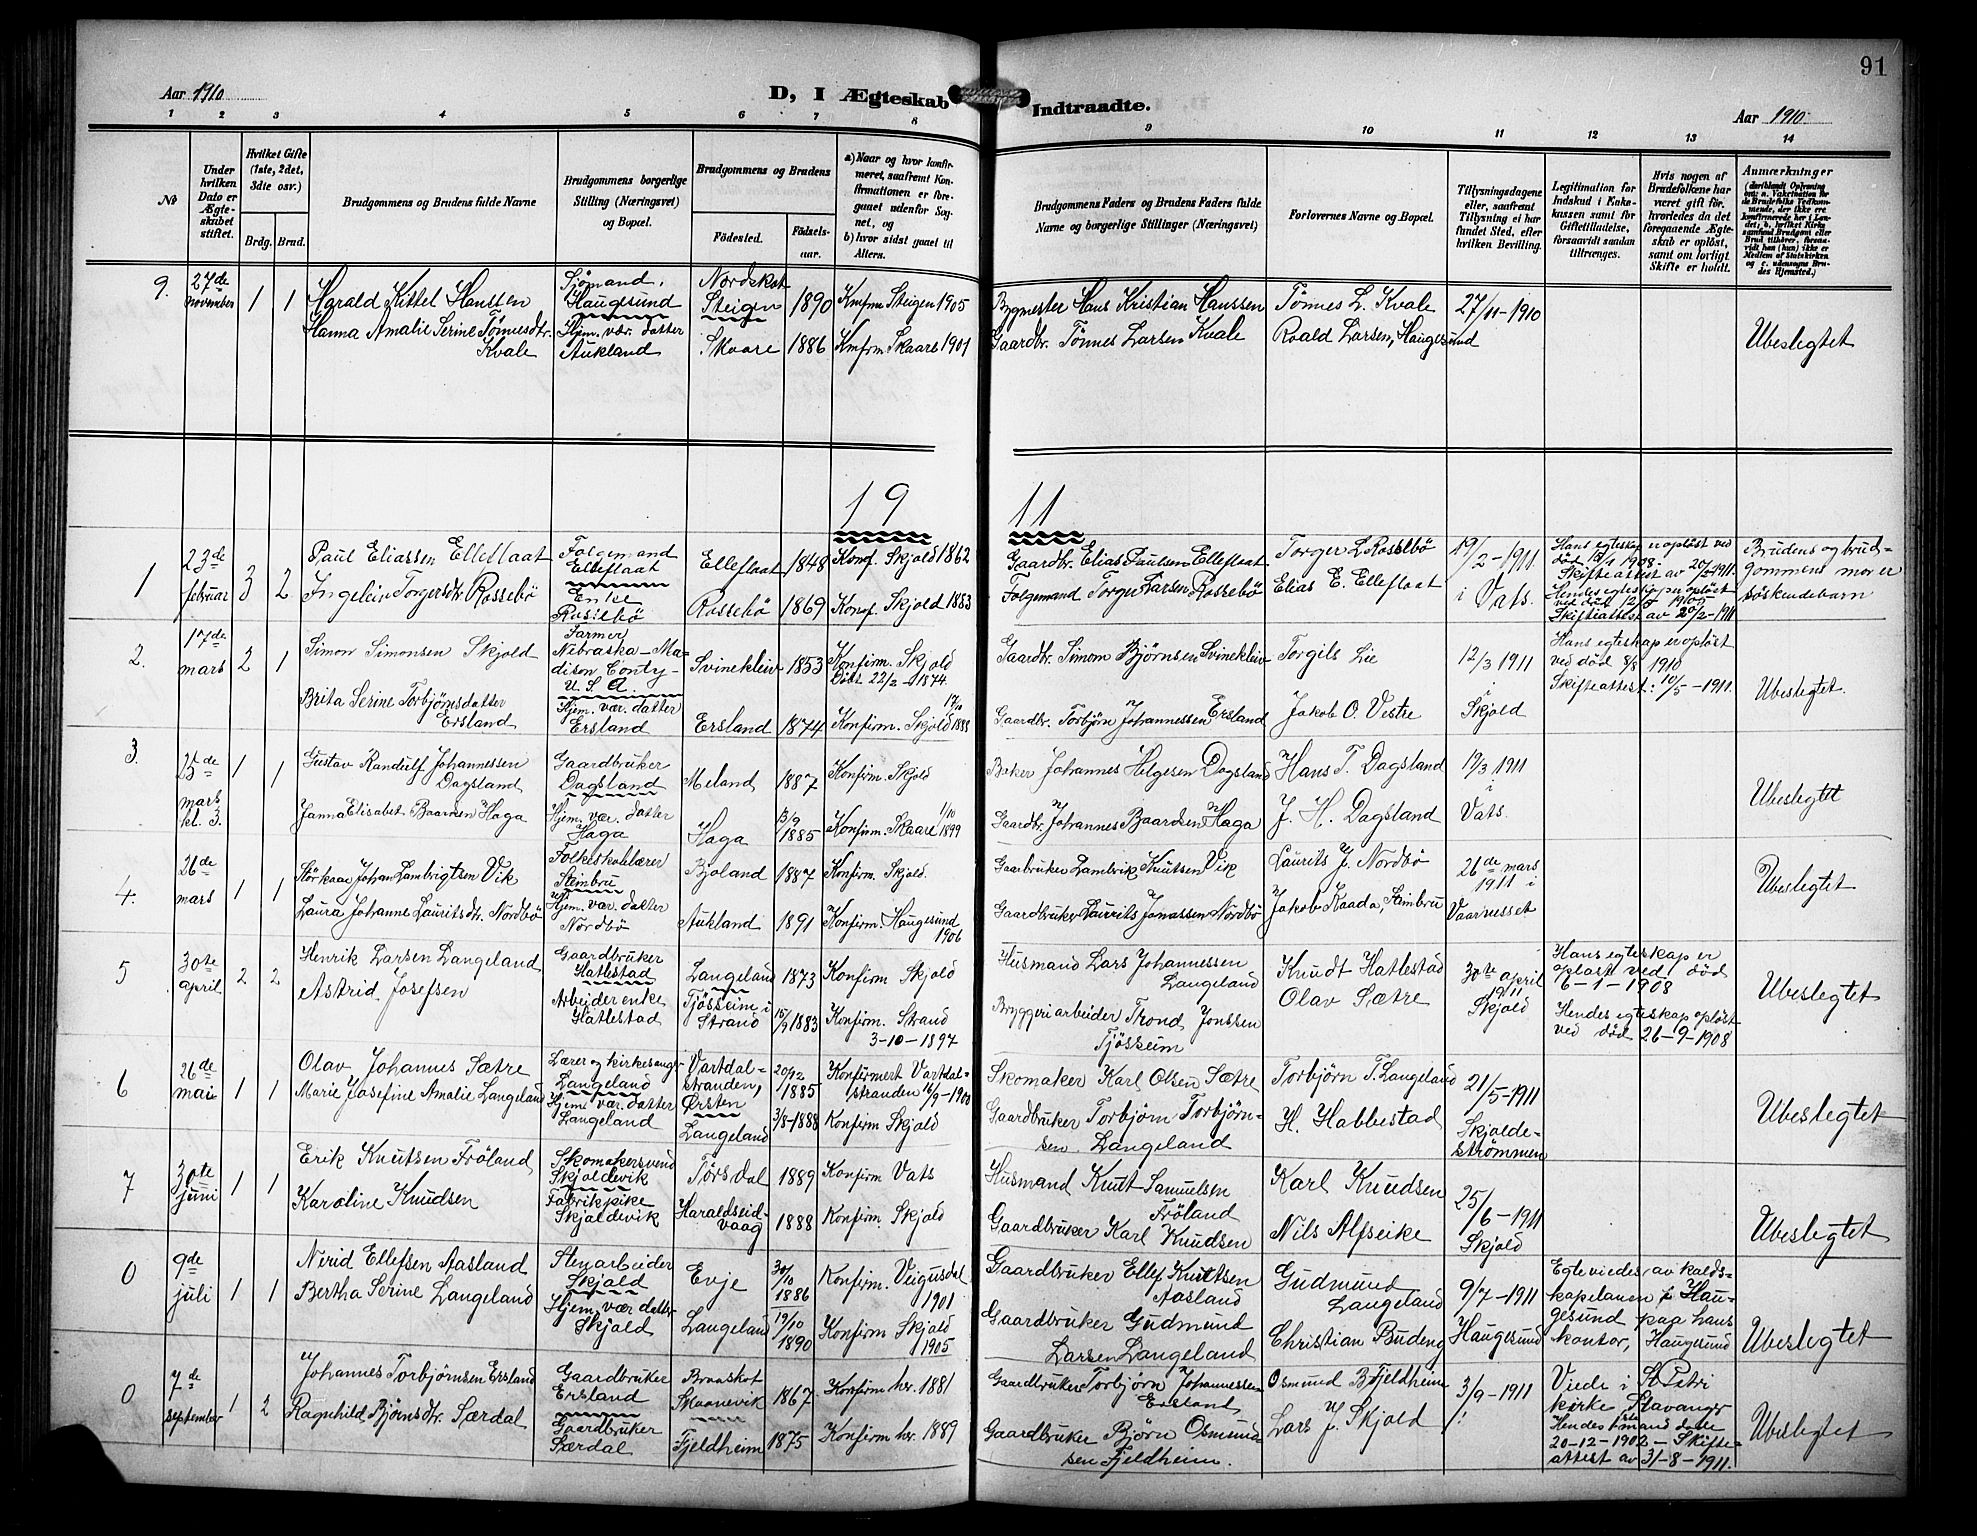 91
Aar 1910
D, I Ægteskab Indtraadte.
Aar 1910.
1 2 3 4 5 6 7 8 9 10 11 12 13 14
No
Under hvilken Dato er Ægteskabet stiftet.
Hvilket Gifte (1ste, 2det, 3die osv.)
Brdg. Brud.
Brudgommens og Brudens fulde Navne
Brudgommens borgerlige Stilling (Næringsvei) og Bopæl.
Brudgommens og Brudens
Födested.
Födselsaar.
a) Naar og hvor konfirmeret, saafremt Konfirmationen er foregaaet udenfor Sognet, og
b) hvor sidst gaaet til Alters.
Brudgommens Faders og Brudens Faders fulde Navne og borgerlige Stillinger (Næringsvei)
Forlovernes Navne og Bopæl.
Tillysningsdagene eller, saafremt Tillysning ei har fundet Sted, efter hvilken Bevilling.
Legitimation for Indskud i Enkekassen samt for Giftetilladelse, forsaavidt saadan tiltrænges.
Hvis nogen af Brudefolkene har været gift för, hvorledes da det foregaaende Ægteskab er oplöst, samt om lovligt Skifte er holdt.
Anmærkninger
9. 27de november 1 1
Harald Kittel Hanssen
Hanna Amalie Serine Tönnesdtr. Kvale
Sjømand, Haugesund
Hjem. vær. datter Aukland
Nordskot Steigen 1890 Kmfrm Steigen 1905
Skaare 1886 Kmfrm Skaare 1901
Bygmester Hans Kristian Hanssen
Gaardbr. Tönnes Larsen Kvale
Tönnes L. Kvale
Roald Larsen, Haugesund
27/11-1910
Ubeslegtet
19 11
1 23de februar 3 2
Paul Eliassen Elleflaat
Ingeleiv Torgersdtr. Rossebö
Folgemand Elleflaat
Enke Rossebö
Elleflaat 1848 Konf. Skjold 1862
Rossebö 1869 Konf. Skjold 1883
Gaardbr. Elias Paulsen Elleflaat
Folgemand Torger Larsen Rossebö
Torger L. Rossebö
Elias E. Elleflaat
19/2-1911 i Vats.
Hans egteskap er opløst ved død 1908.
Skifteattest av 20/2-1911.
Hendes egteskap opløst ved død 1905
Skifteattest av 20/2-1911
Brudens og brudgommens mor er söskendebarn
2. 17de mars 2 1
Simon Simonsen Skjold
Brita Serine Torbjörnsdatter Ersland
Farmer Nebraska-Madison Conty-U.S.A.
Hjem. vær. datter Ersland
Svinekleiv 1853 Konfirm. Skjold
Döbt 22/2-1874.
Ersland 1874 Konfirm. Skjold 1888
Gaardbr. Simon Bjørnsen Svinekleiv
Gaardbr. Torbjörn Johannessen Ersland
Torgils Lie
Jakob O. Vestre
12/3 1911 i Skjold
Hans egteskap er opløst ved død 8/8 1910
Skifteattest: 10/5-1911.
Ubeslegtet.
3. 25de mars kl. 3. 1 1
Gustav Randulf Johannessen Dagsland
Janna Elisabet Baardsen Haga
Gaardbruker Dagsland
Hjem. vær. datter Haga
Meland 1887 Konfirm. Skjold
Haga 1885 Konfirm. Skaare 1/10 1899
Baker Johannes Helgesen Dagsland
Gaardbr. Johannes Baardsen Haga
Hans T. Dagsland
J. H. Dagsland
19/3 1911 i Vats.
Ubeslegtet
4. 26de mars 1 1
Störkaar Johan Lambrigtsen Vik
Laura Johanne Lauritsdtr. Nordbö
Folkeskolelærer Steinbru
Hjem. vær. datter Nordbö
Bjoland 1887 Konfirm. Skjold.
Aukland 1891 Konfirm. Haugesund 1906
Gaarbruker Lambrik Knutsen Vik
Gaardbruker Laurits Jonassen Nordbö
Laurits J. Nordbö
Jakob Kaada, Steinbru
26de mars 1911 i Vaarnesset
Ubeslegtet
5 30te april 2 2
Henrik Larsen Langeland
Astrid Josefsen
Gaardbruker Hatlestad
Arbeider enke Hatlestad
Langeland 1873 Konfirm Skjold
Tjösseim i Strand 15/9 1883 Konfirm. Strand 3-10-1897
Husmand Lars Johannessen Langeland
Bryggeriarbeider Trond Jonssen Tjösseim
Knudt Hatlestad
Olav Sætre
30te april 1911 i Skjold
Hans egteskap er opløst ved död 6-1-1908
Hendes egteskap opløst ved död 26-9-1908
Ubeslegtet
6 26de mai 1 1
Olav Johannes Sætre
Marie Josefine Amalie Langeland
Lærer og kirkesanger Langeland
Hjem. vær. datter Langeland
Vartdalstranden, Ørsten 20/12 1885 Konfirmert Vartdalstranden 16/9-1900
Langeland 3/8-1888 Konfirm Skjold
Skomaker Karl Olsen Sætre
Gaardbruker Torbjörn Torbjörnsen Langeland
Torbjørn T. Langeland
H. Habbestad
21/5-1911 Skjoldeströmmen
Ubeslegtet
7 30te juni 1 1
Erik Knutsen Fröland
Karoline Knudsen
Skomakersvend Skjoldevik
Fabrikpike Skjoldevik
Törsdal 1889 Konfirm Vats
Haraldseidvaag 1888 Konfirm. Skjold
Husmand Knut Samuelsen Fröland
Gaardbruker Karl Knudsen
Karl Knudsen
Nils Alfseike
25/6-1911 Skjold
Ubeslegtet
0 9de juli 1 1
Nerid Ellefsen Aasland
Bertha Serine Langeland
Stenarbeider Skjold
Hjem. vær datter Skjold
Evje 30/10 1886 Konfirm. Veigusdal 1901
Langeland 19/10 1890 Konfirm Skjold 1905
Gaardbruker Ellef Knutsen Aasland
Gaardbruker Gudmund Larsen Langeland
Gudmund Langeland
Christian Budeng
9/7-1911 Haugesund
Egteviedes av kaldskapelanen i Haugesund paa hans kontor, Haugesund
Ubeslegtet
0 7de september 1 2
Johannes Torbjörnsen Ersland
Ragnhild Bjørnsdtr. Særdal
Gaardbruker Ersland
Gaardbruker Særdal
Skaanevik 1867 Konfirm her. 1881
Fjeldheim 1875 Konfirm her. 1889
Gaardbruker Torbjörn Johannessen Ersland
Gaardbruker Björn Osmundsen Fjeldheim.
Osmund B. Fjeldheim
Lars J. Skjold
3/9-1911
Viede i St. Petri kirke, Stavanger
Hendes 1ste mand døde 20-12-1902 - Skifteattest av 31-8-1911.
Ubeslegtet